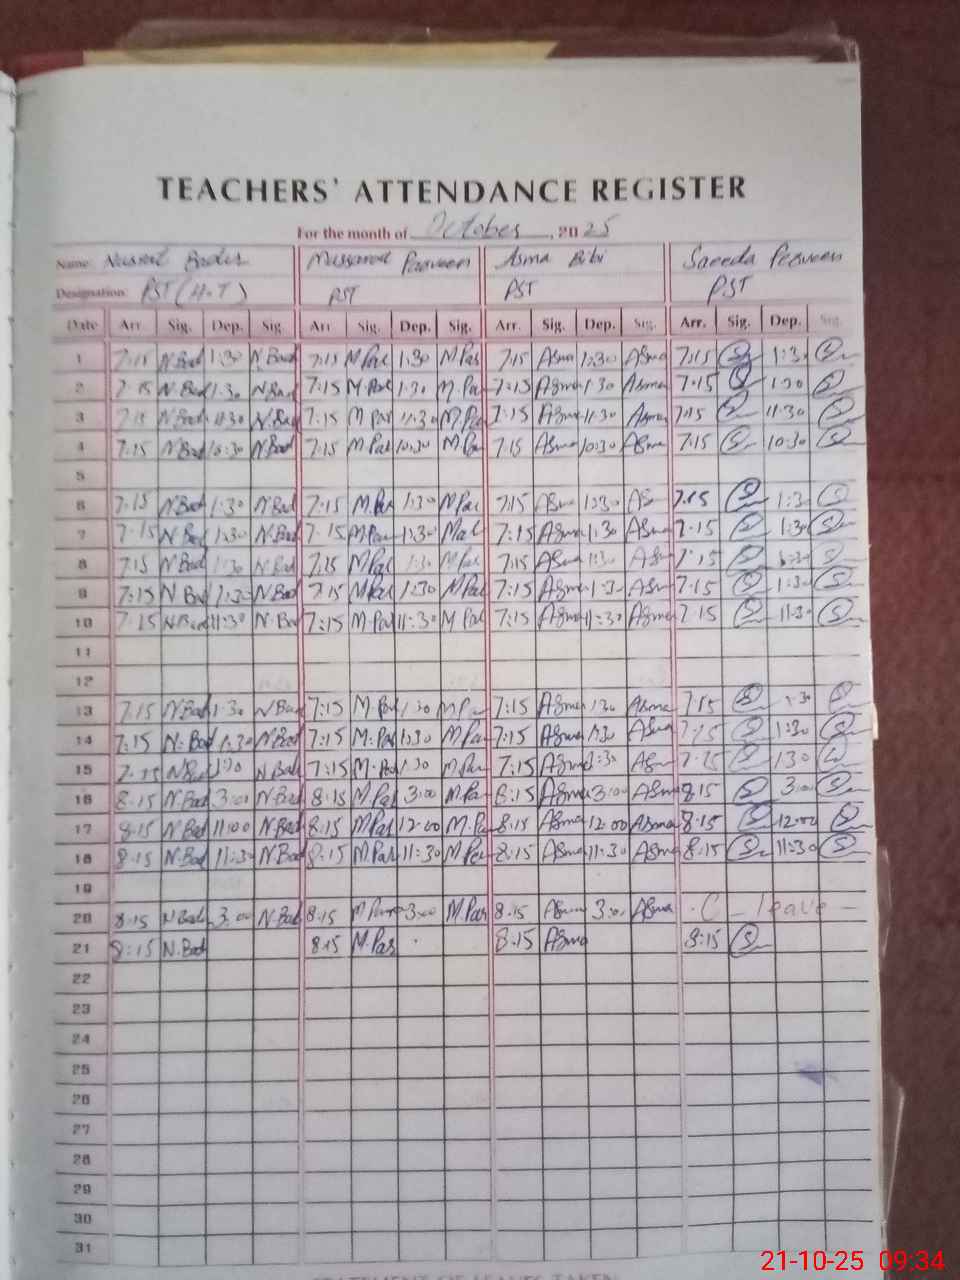 TEACHERS' ATTENDANCE REGISTER
For the month of October, 2025
Name Nusrat Bader Mussarat Parveen Asma Bibi Saeeda Perveen
Designation PST (H.T) PST PST PST
Date Arr. Sig. Dep. Sig. Arr Sig. Dep. Sig. Arr. Sig. Dep. Sig. Arr. Sig. Dep. Sig.
1 7:15 N.Bad 1:30 N.Bad 7:15 M Par 1:30 M Par 7:15 Asma 1:30 Asma 7:15 S 1:30 S
2 7:15 N.Bad 1:30 N.Bad 7:15 M.Par 1:30 M.Par 7:15 Asma 1:30 Asma 7:15 S 1:30 S
3 7:15 N.Bad 11:30 N.Bad 7:15 M Par 11:30 M.Par 7:15 Asma 11:30 Asma 7:15 S 11:30 S
4 7:15 N.Bad 10:30 N.Bad 7:15 M.Par 10:30 M.Par 7:15 Asma 10:30 Asma 7:15 S 10:30 S
5
6 7:15 N.Bad 1:30 N.Bad 7:15 M.Par 1:30 M Par 7:15 Asma 1:30 As 7:15 S 1:30 S
7 7:15 N.Bad 1:30 N.Bad 7:15 M.Par 1:30 7:15 Asma 1:30 Asma 7:15 S 1:30 S
8 7:15 N.Bad 1:30 N.Bad 7:15 M.Par 1:30 M.Par 7:15 Asma 1:30 Asm 7:15 S S
9 7:15 N Bad 1:30 N.Bad 7:15 M.Par 1:30 M.Par 7:15 Asma 1:30 Asma 7:15 S 1:30 S
10 7:15 N.Bad 11:30 N.Bad 7:15 M.Par 11:30 M Par 7:15 Asma 11:30 Asma 7:15 S 11:30 S
11
12
13 7:15 N.Bad 1:30 N.Bad 7:15 M.Par 1:30 M.Par 7:15 Asma 1:30 Asma 7:15 S 1:30 S
14 7:15 N.Bad 1:30 N.Bad 7:15 M.Par 1:30 M.Par 7:15 Asma 1:30 Asma 7:15 S 1:30 S
15 7:15 N.Bad 1:30 N.Bad 7:15 M.Par 1:30 M.Par 7:15 Asma 1:30 Asm 7:15 S 1:30 S
16 8:15 N.Bad 3:00 N.Bad 8:15 M.Par 3:00 M.Par 8:15 Asma 3:00 Asma 8:15 S 3:00 S
17 8:15 N.Bad 11:00 N.Bad 8:15 M.Par 12:00 M.Par 8:15 Asma 12:00 Asma 8:15 S 12:00 S
18 8:15 N.Bad 11:30 N.Bad 8:15 M.Par 11:30 M.Par 8:15 Asma 11:30 Asma 8:15 S 11:30 S
19
20 8:15 N.Bad 3:00 N.Bad 8:15 3:00 M.Par 8:15 Asma 3:00 Asma C - leave -
21 8:15 N.Bad 8:15 M.Par 8:15 Asma 8:15 S
22
23
24
25
26
27
28
29
30
31
21-10-25 09:34